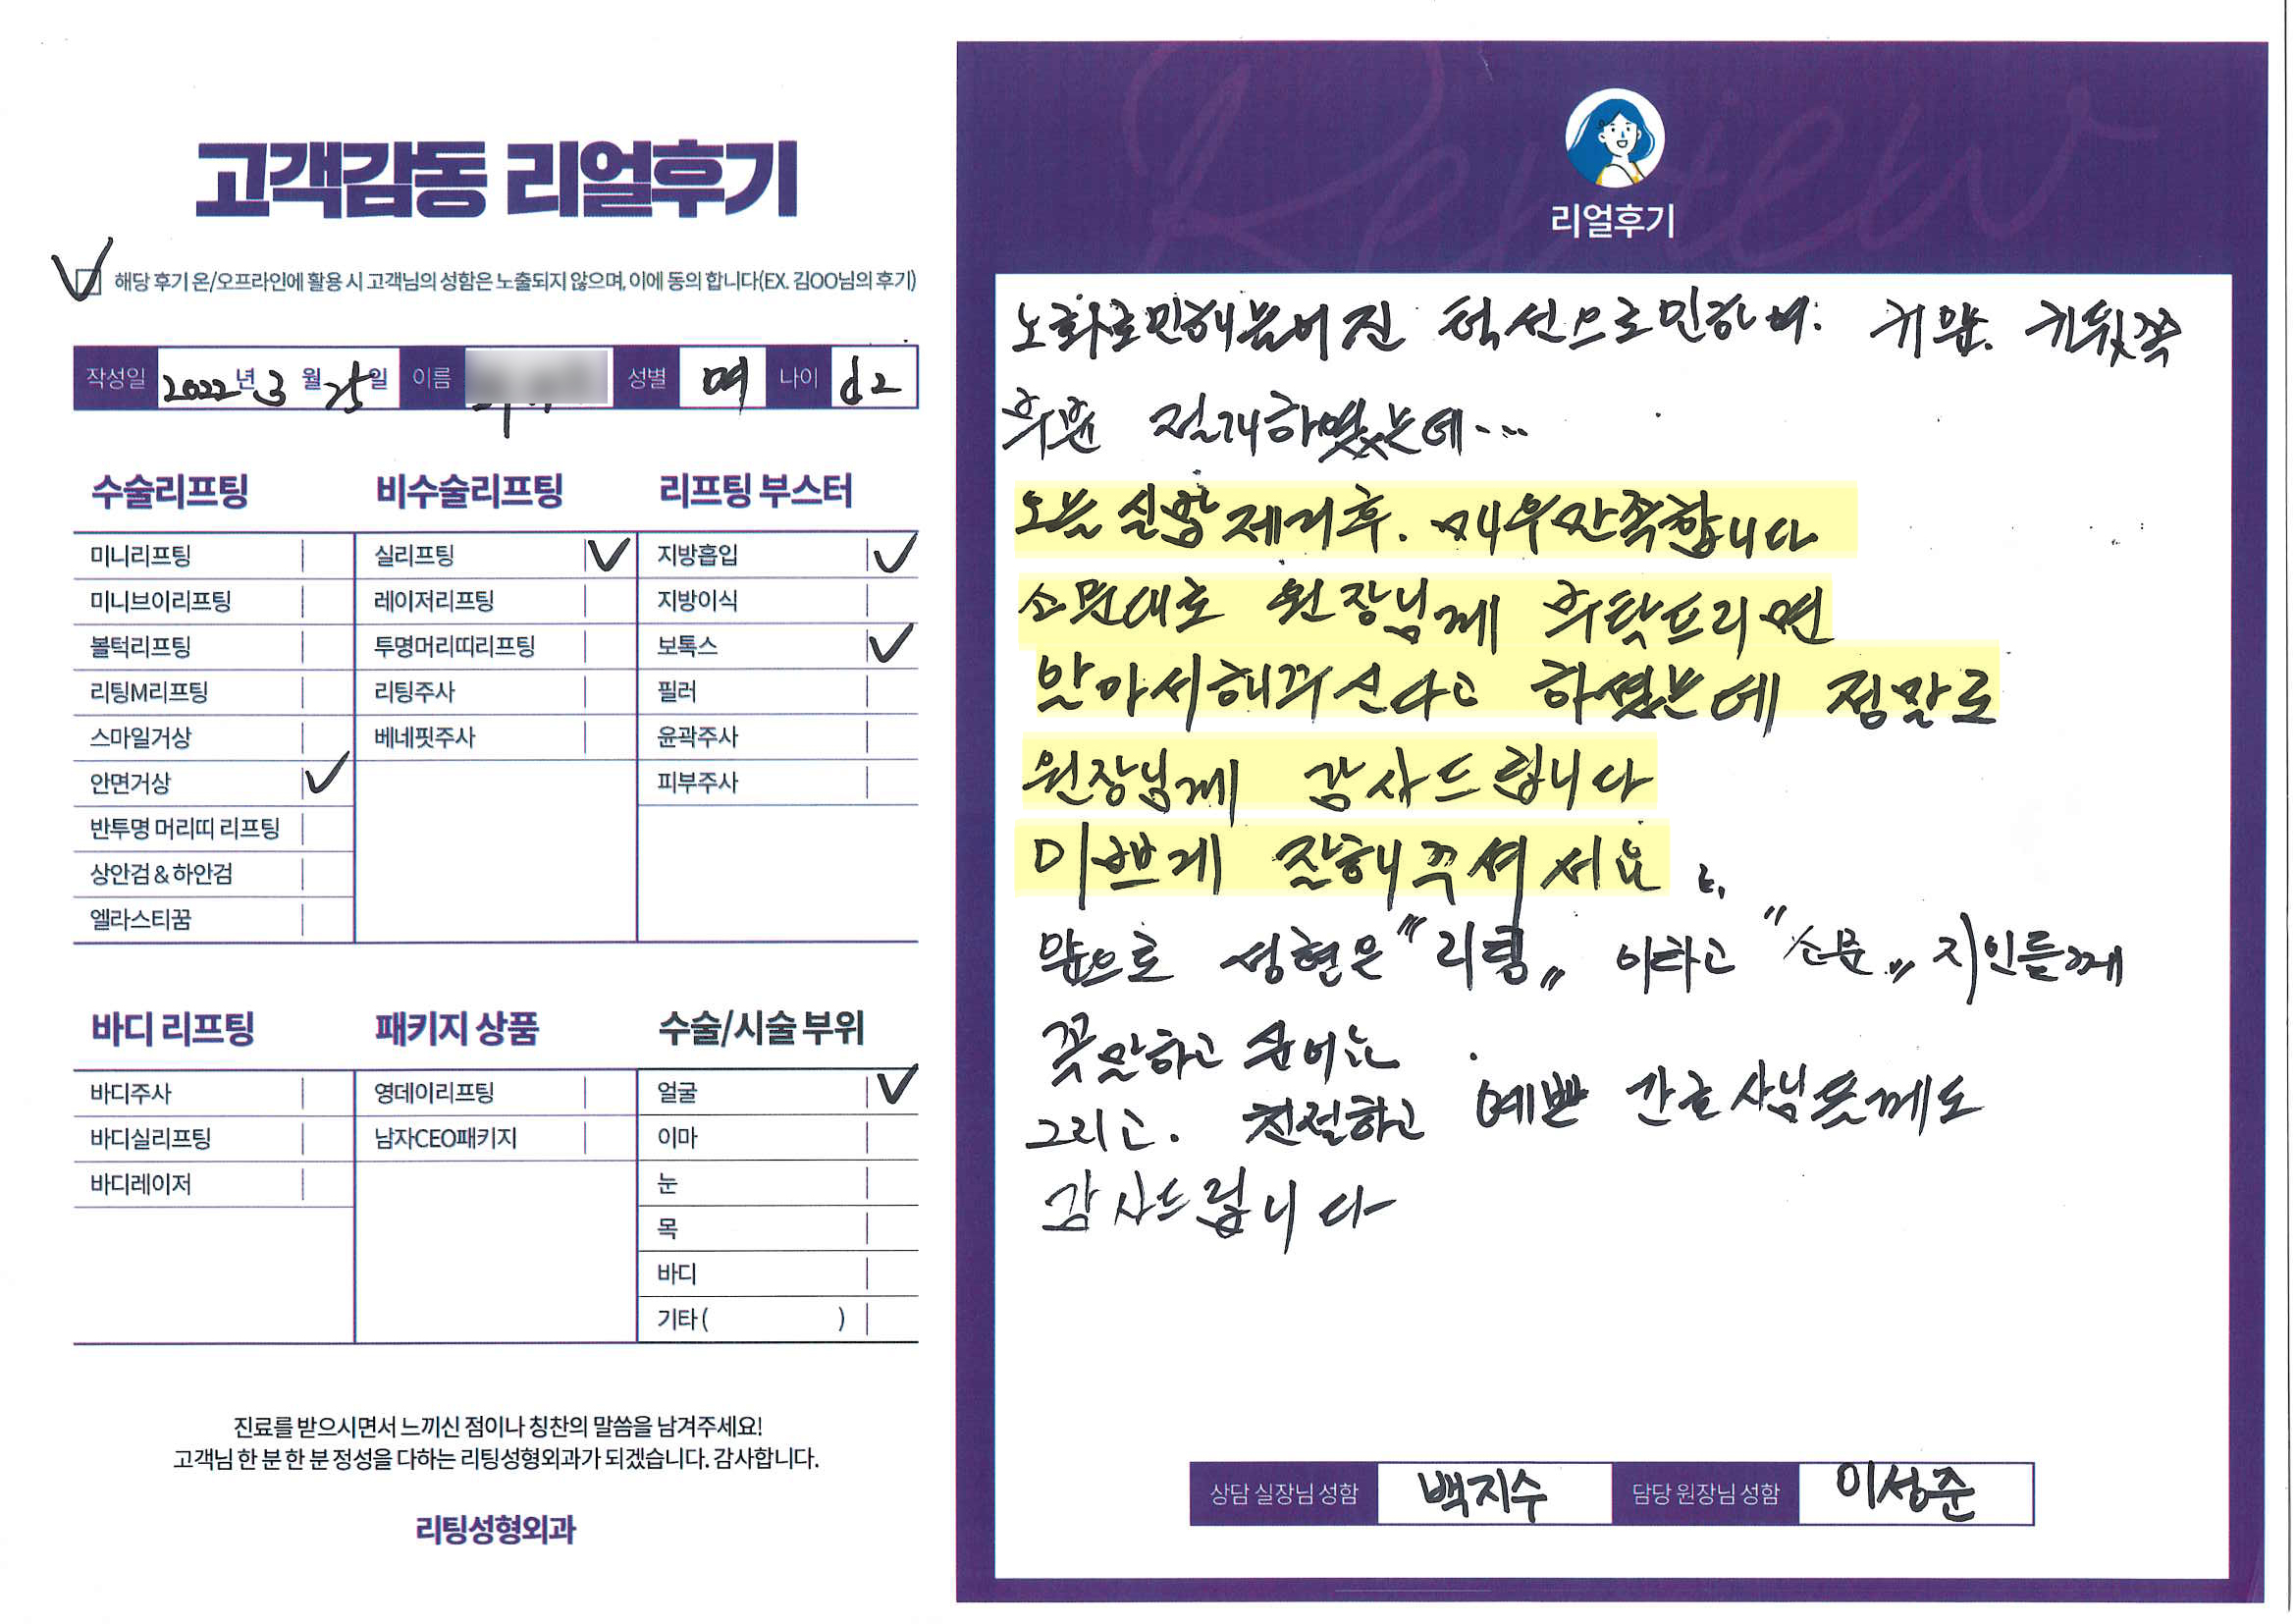 고객감동 리얼후기
해당 후기 온/오프라인에 활용 시 고객님의 성함은 노출되지 않으며, 이에 동의 합니다(EX. 김OO님의 후기)
작성일 2022년 3월 25일 이름 성별 여 나이 62
수술리프팅
미니리프팅
미니브이리프팅
볼턱리프팅
리팅M리프팅
스마일거상
안면거상
반투명 머리띠 리프팅
상안검 & 하안검
엘라스티꿈
비수술리프팅
실리프팅
레이저리프팅
투명머리띠리프팅
리팅주사
베네핏주사
리프팅 부스터
지방흡입
지방이식
보톡스
필러
윤곽주사
피부주사
바디 리프팅
바디주사
바디실리프팅
바디레이저
패키지 상품
영데이리프팅
남자CEO패키지
수술/시술 부위
얼굴
이마
눈
목
바디
기타 ( )
진료를 받으시면서 느끼신 점이나 칭찬의 말씀을 남겨주세요!
고객님 한 분 한 분 정성을 다하는 리팅성형외과가 되겠습니다. 감사합니다.
리팅성형외과
Review
리얼후기
노화로인해늘어진 턱선으로인하여. 귀앞. 귀뒷쪽
절개하였는데...
오늘 실밥제거후. 매우만족합니다
소문대로 원장님께 부탁드리면
알아서해주신다고 하셨는데 정말로
원장님께 감사드립니다
이쁘게 잘해주셔서요
앞으로 성형은 "리팅" 이라고 "소문" 지인들께
꼭말하고 싶어요
그리고. 친절하고 예쁜 간호사님들께도
감사드립니다
상담 실장님 성함 백지수 담당 원장님 성함 이성준